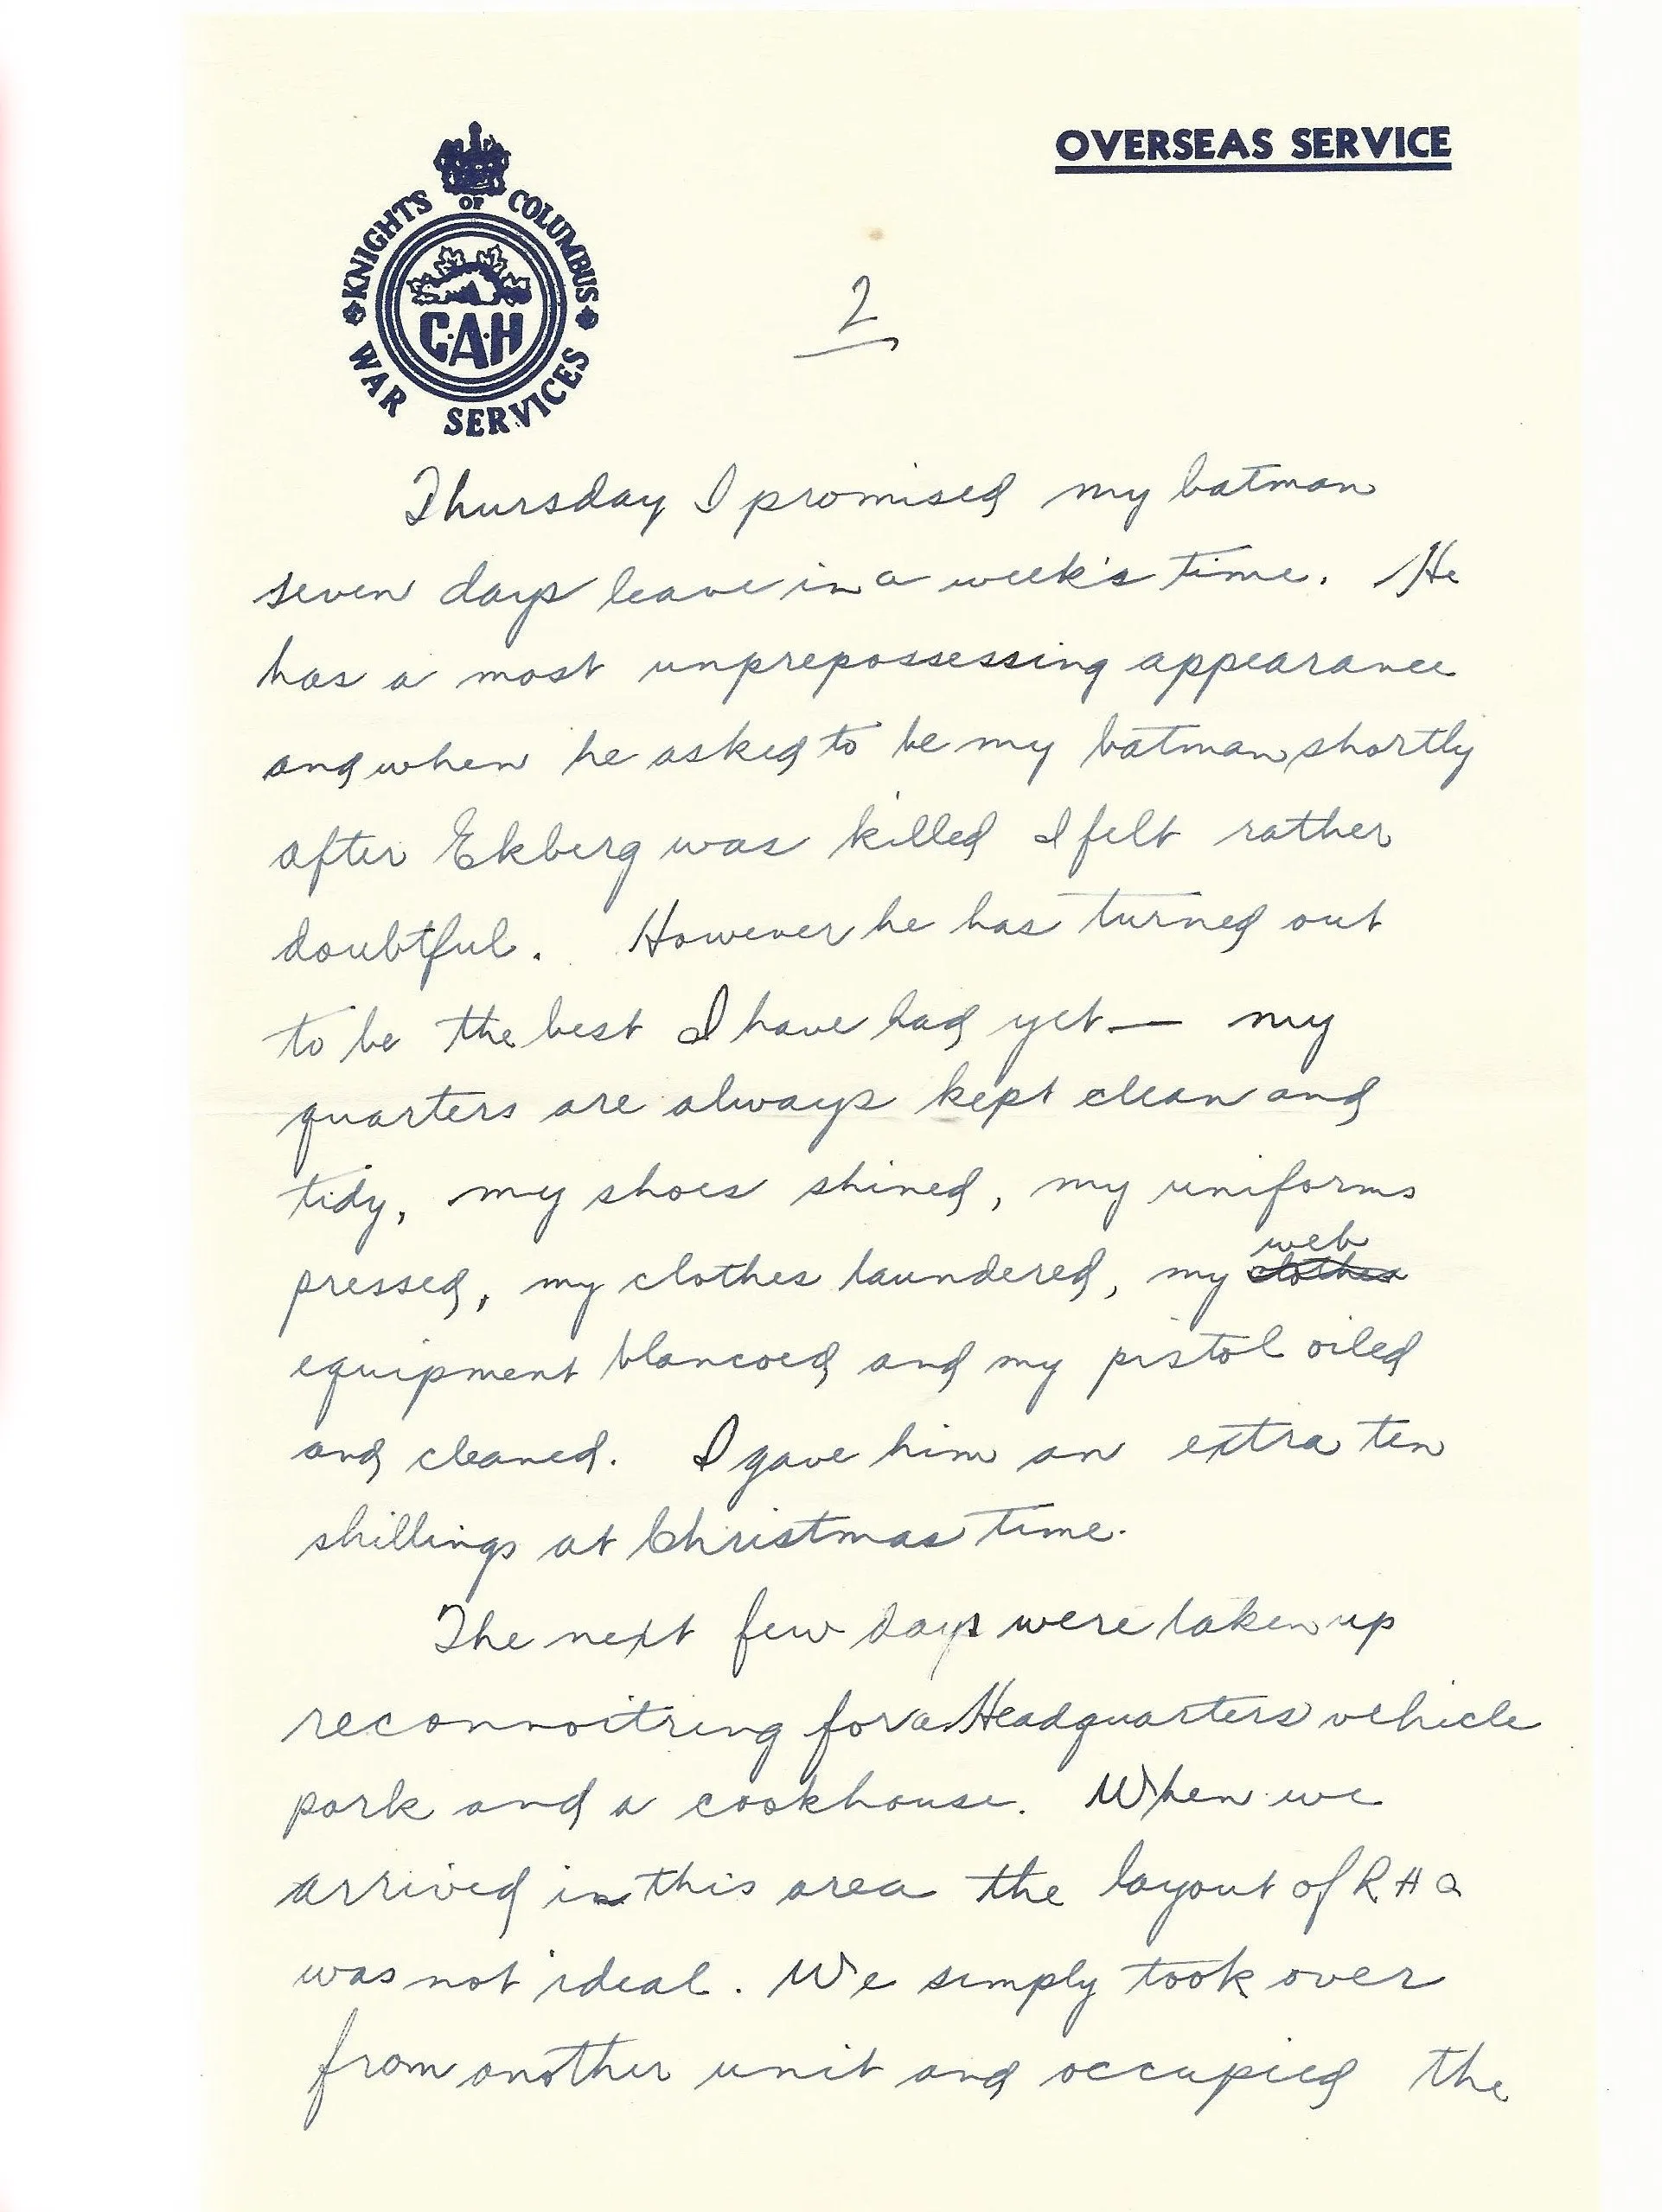 OVERSEAS SERVICE
KNIGHTS OF COLUMBUS
C·A·H
WAR SERVICES
2
Thursday I promised my batman
seven days leave in a week's time. He
has a most unprepossessing appearance
and when he asked to be my batman shortly
after Ekberg was killed I felt rather
doubtful. However he has turned out
to be the best I have had yet — my
quarters are always kept clean and
tidy, my shoes shined, my uniforms
pressed, my clothes laundered, my ~~clothes~~ web
equipment blancoed and my pistol oiled
and cleaned. I gave him an extra ten
shillings at Christmas time.
The next few days were taken up
reconnoitring for a Headquarters vehicle
park and a cookhouse. When we
arrived in this area the layout of RHQ
was not ideal. We simply took over
from another unit and occupied the